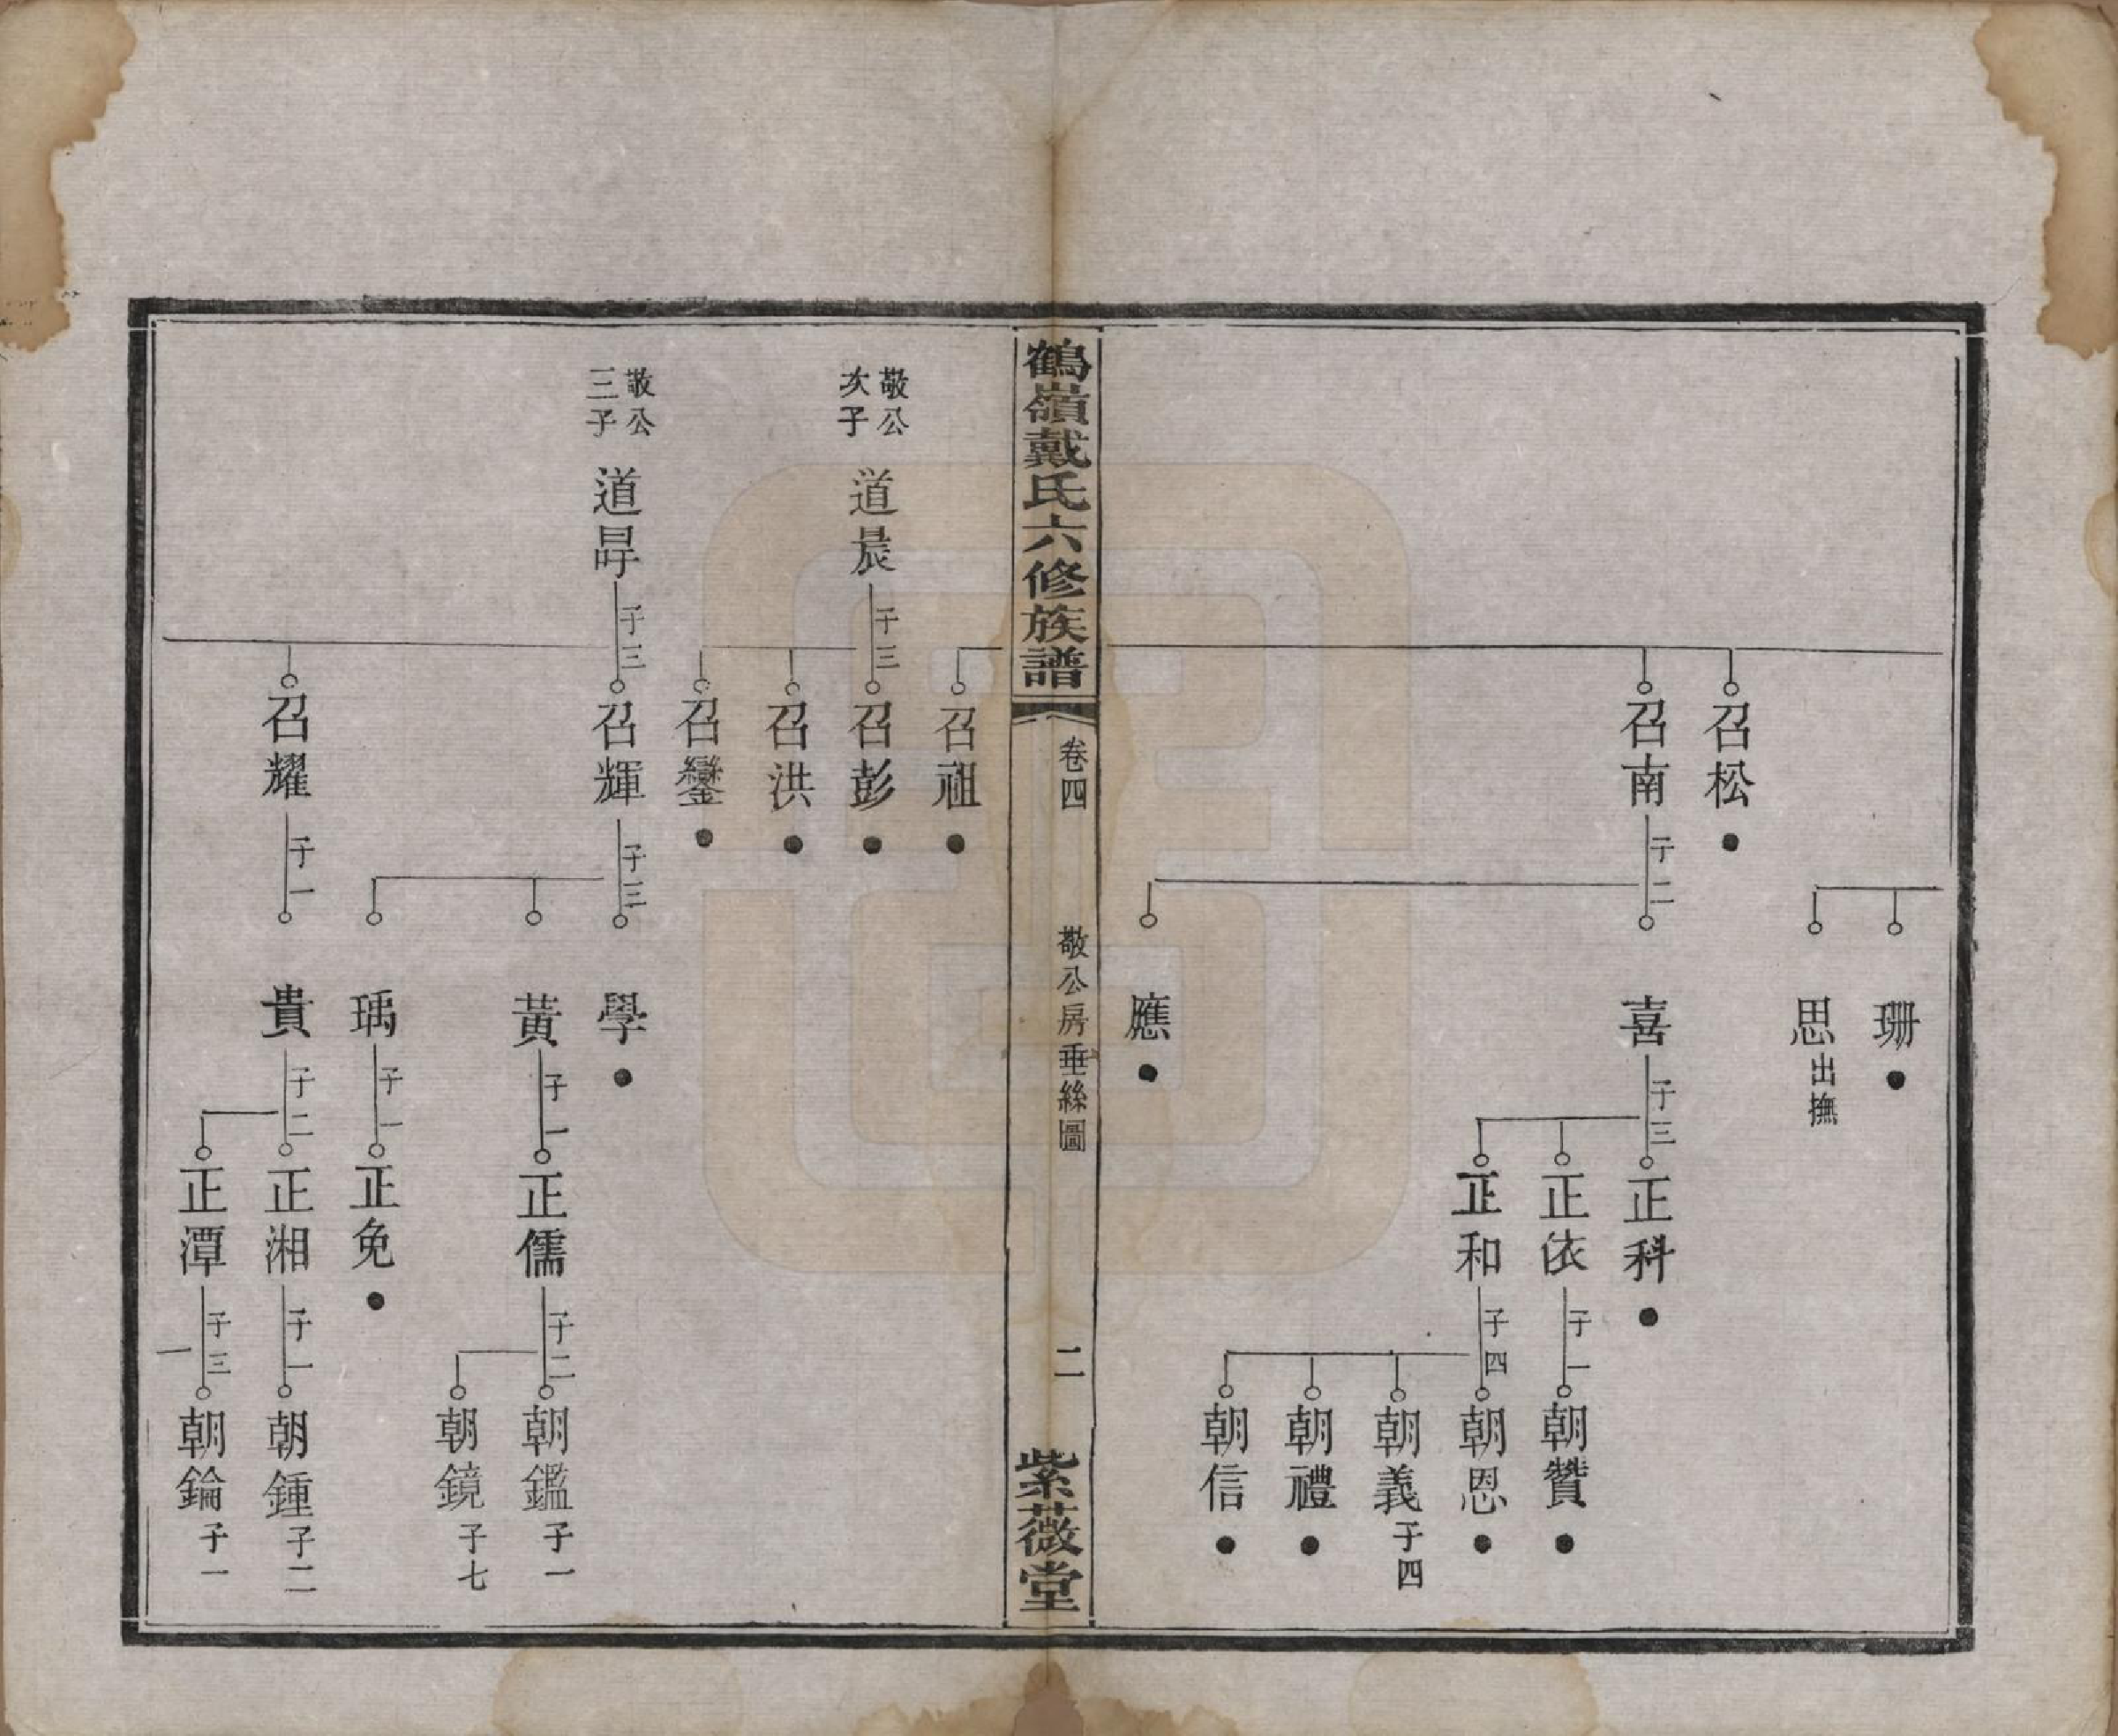 珊
思出撫
召松
召南 子二
喜 子三
正科
正依 子一
朝贊
正和 子四
朝恩
朝義 子四
朝禮
朝信
應
鶴嶺戴氏六修族譜
卷四
敬公房垂絲圖
二
紫薇堂
召祖
敬公
次子
道晨 子三
召彭
召洪
召鑾
敬公
三子
子三
召輝 子三
學
黃 子一
正儒 子二
朝鑑 子一
朝鏡 子七
瑀 子一
正免
召耀 子一
貴 子二
正湘 子一
朝鍾 子二
正潭 子三
朝錀 子一